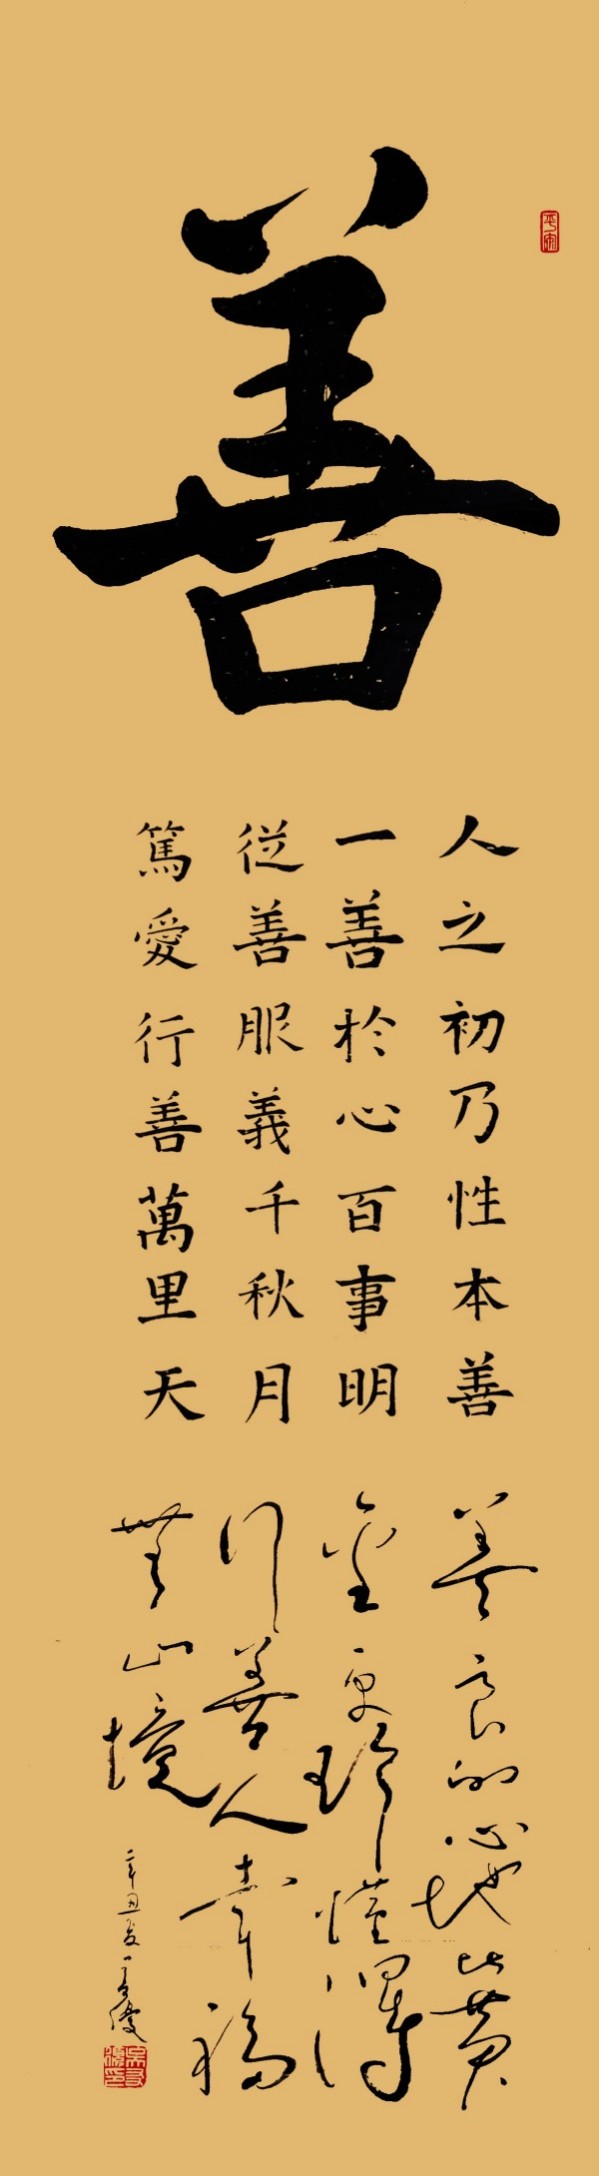 善
平安
人之初乃性本善
一善於心百事明
從善服義千秋月
篤愛行善萬里天
善良的心地比黄
金更珍懂得
行善人幸福
無止境
辛丑夏